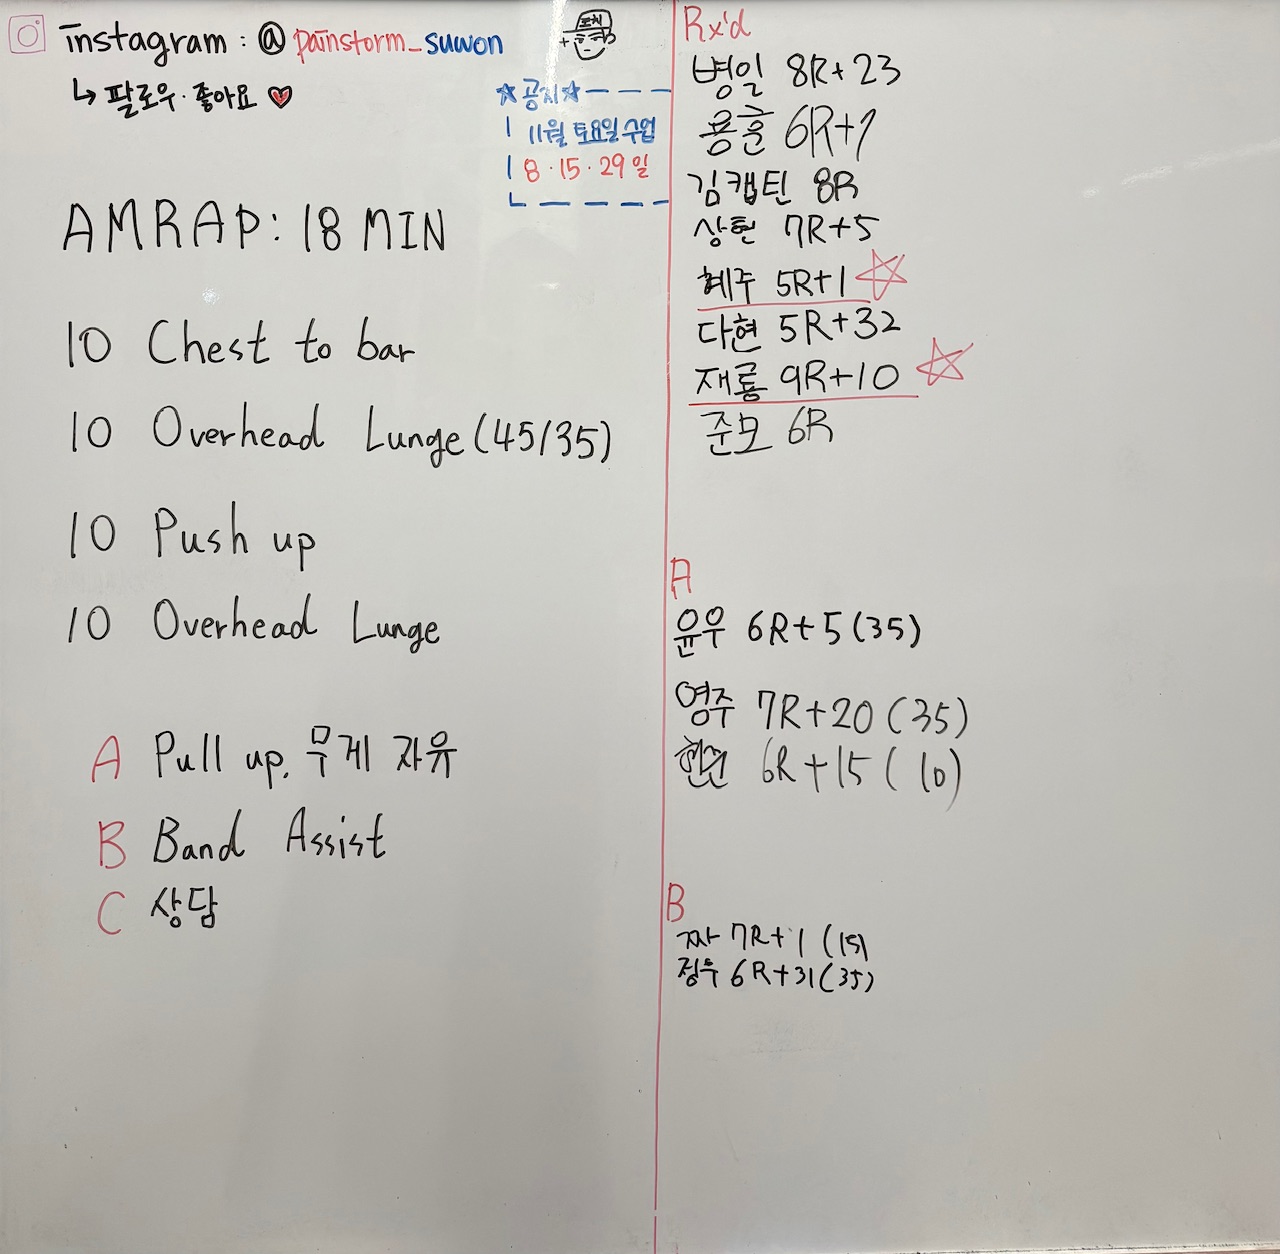 instagram : @painstorm_suwon
↳ 팔로우·좋아요 ♥
코치
☆공지☆
11월 토요일 수업
8·15·29일
AMRAP: 18 MIN
10 Chest to bar
10 Overhead Lunge (45/35)
10 Push up
10 Overhead Lunge
A Pull up, 무게 자유
B Band Assist
C 상담
Rx'd
병일 8R+23
용훈 6R+1
김캡틴 8R
상현 7R+5
혜주 5R+1 ☆
다현 5R+32
재룡 9R+10 ☆
준모 6R
A
윤우 6R+5 (35)
영주 7R+20 (35)
6R+15 (10)
B
짜 7R+1 (15)
정두 6R+31 (35)